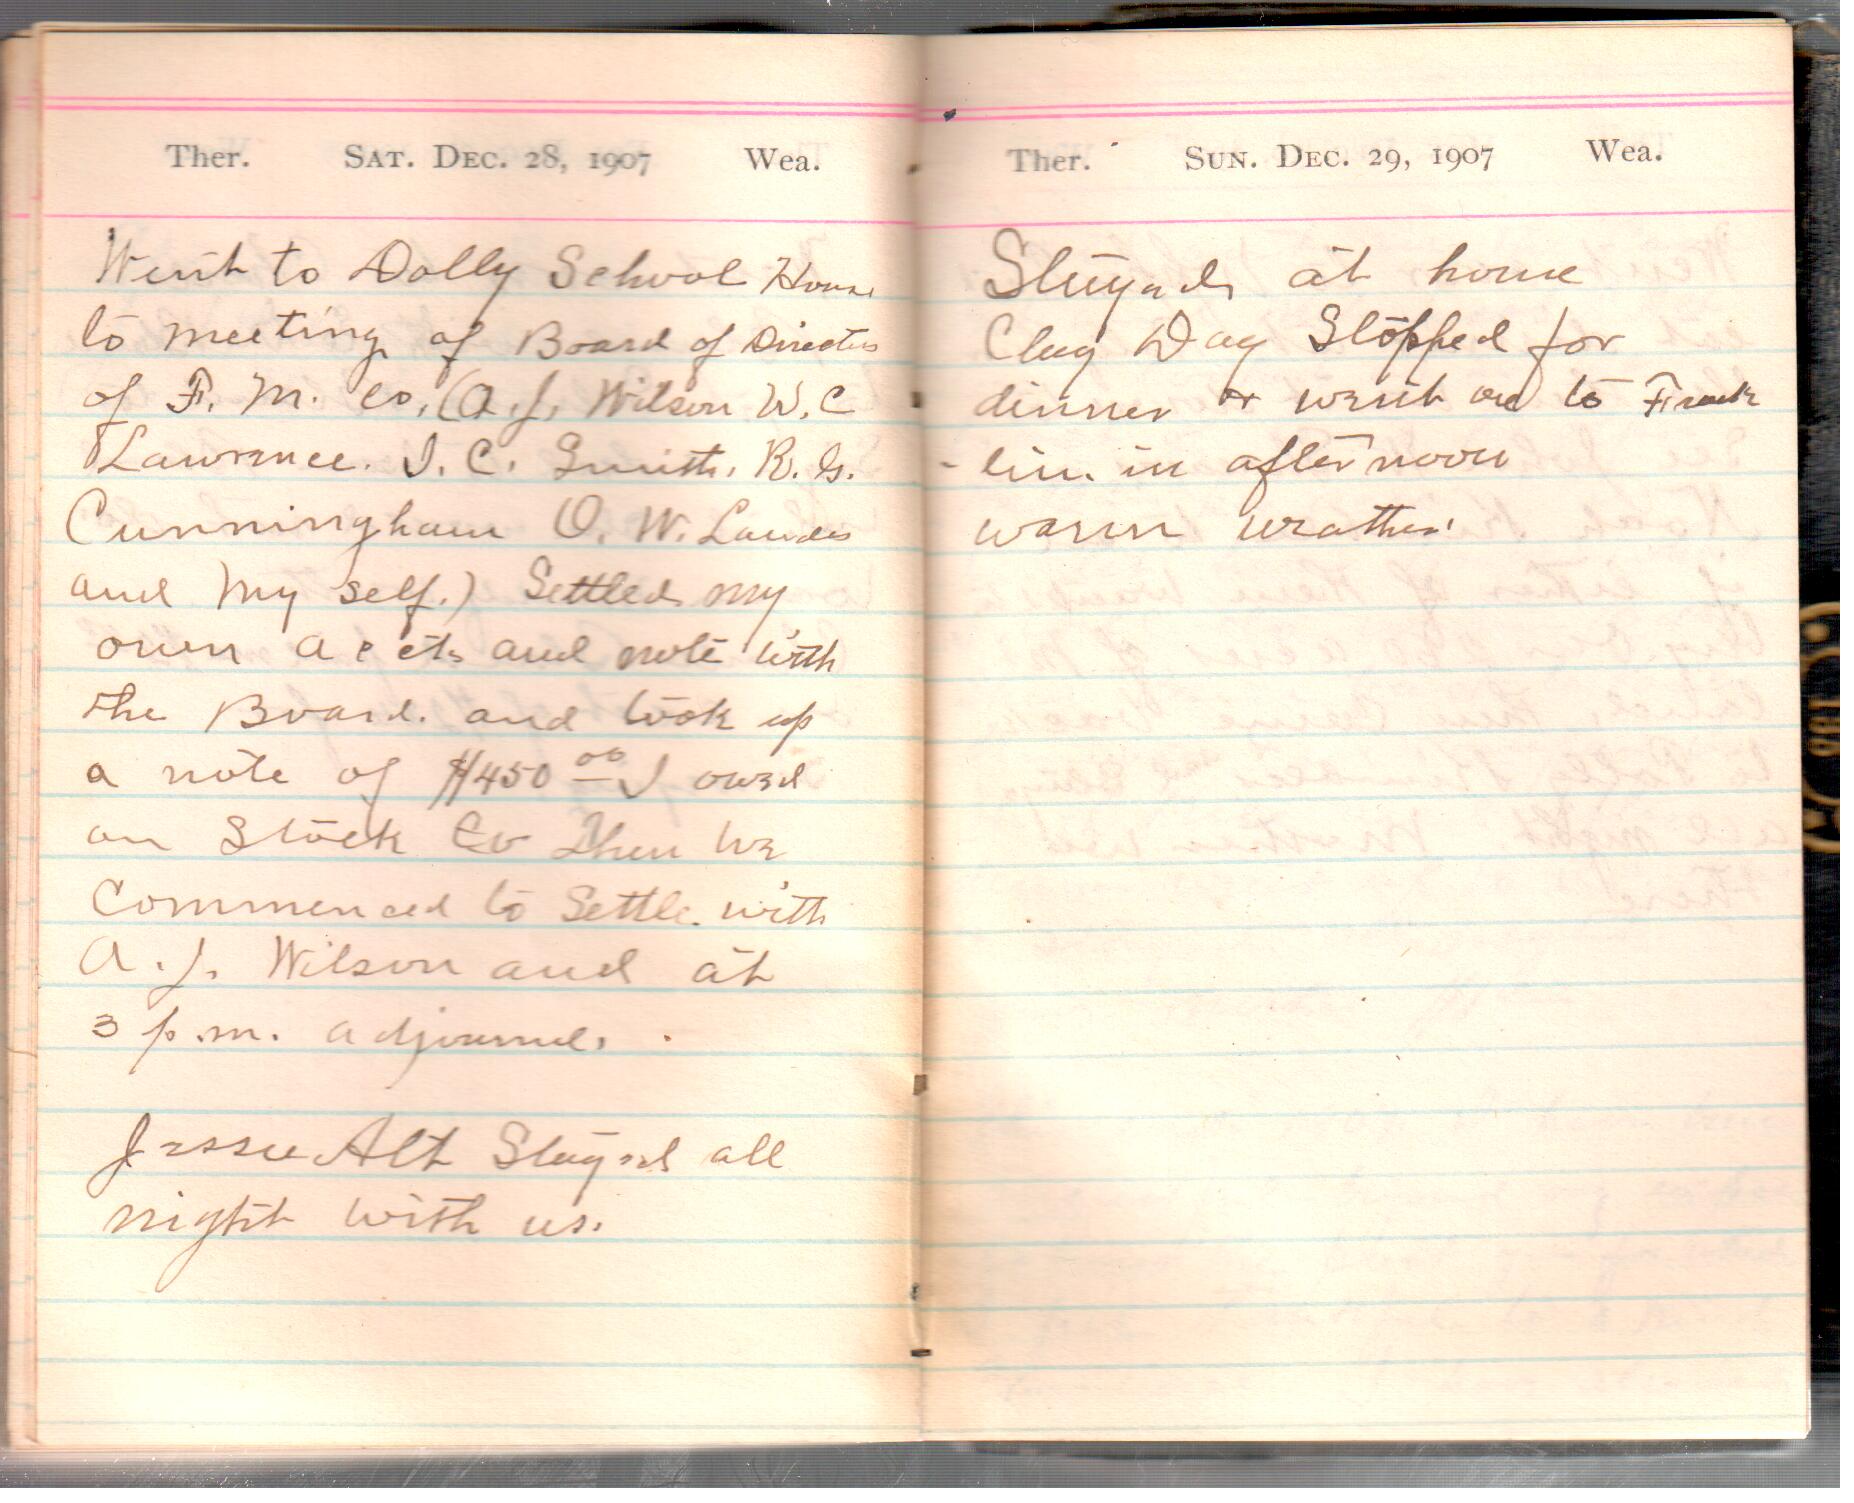 Ther. SAT. DEC. 28, 1907 Wea.
Went to Dolly School House
to meeting of Board of Directors
of F. M. Co, (A. J. Wilson W. C
Lawrence. I. C. Smith. R. G.
Cunningham O. W. Landes
and My self.) Settled my
own accts and note with
the Board. and took up
a note of $450 00 I owed
on Stock Co Then we
Commenced to Settle with
A. J. Wilson and at
3 p.m. adjourned.
Jessie Alt Stayed all
night with us.
Ther. SUN. DEC. 29, 1907 Wea.
Stayed at home
Clay Day Stopped for
dinner & went on to Frank
- lin. in afternoon
warm weather